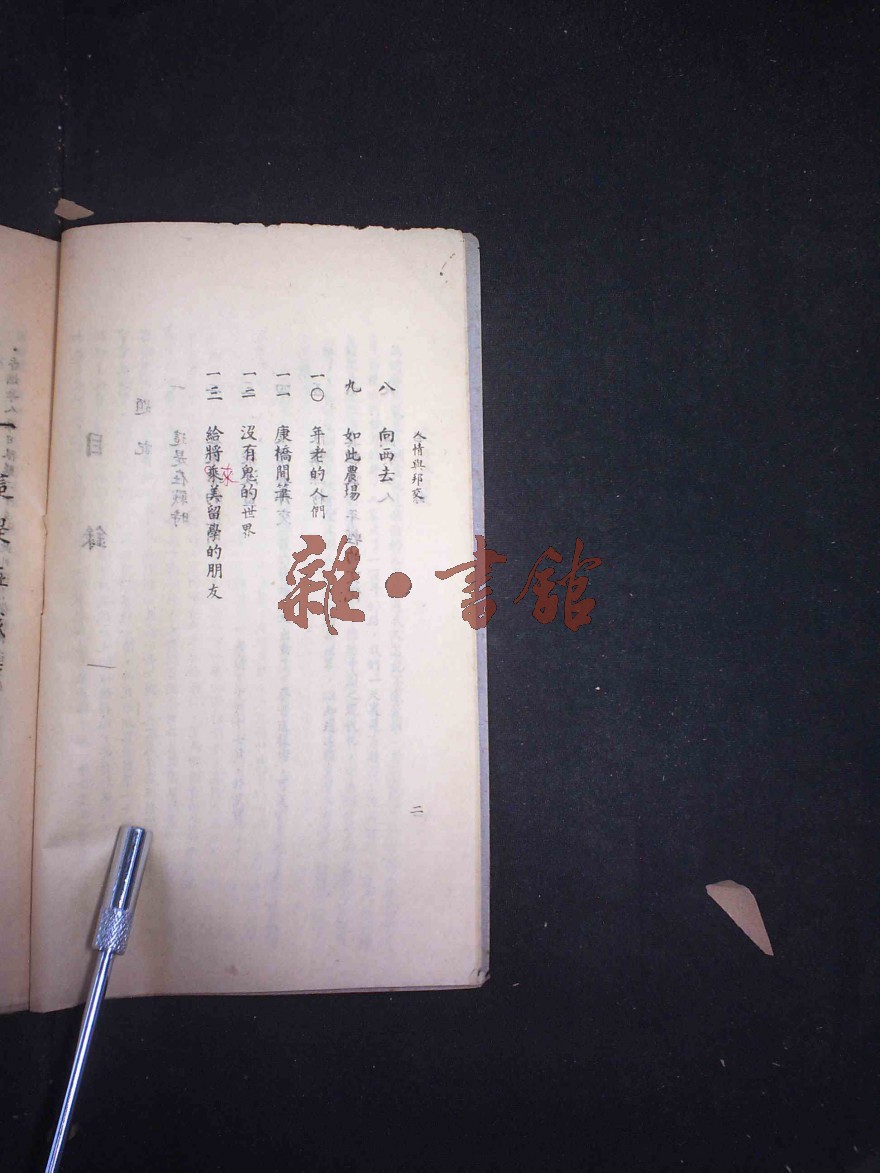 人情與邦交
八 向西去
九 如此農場
一〇 年老的人們
一一 康橋
一二 沒有鬼的世界
一三 給將乘美留學的朋友
來
二
雜·書館